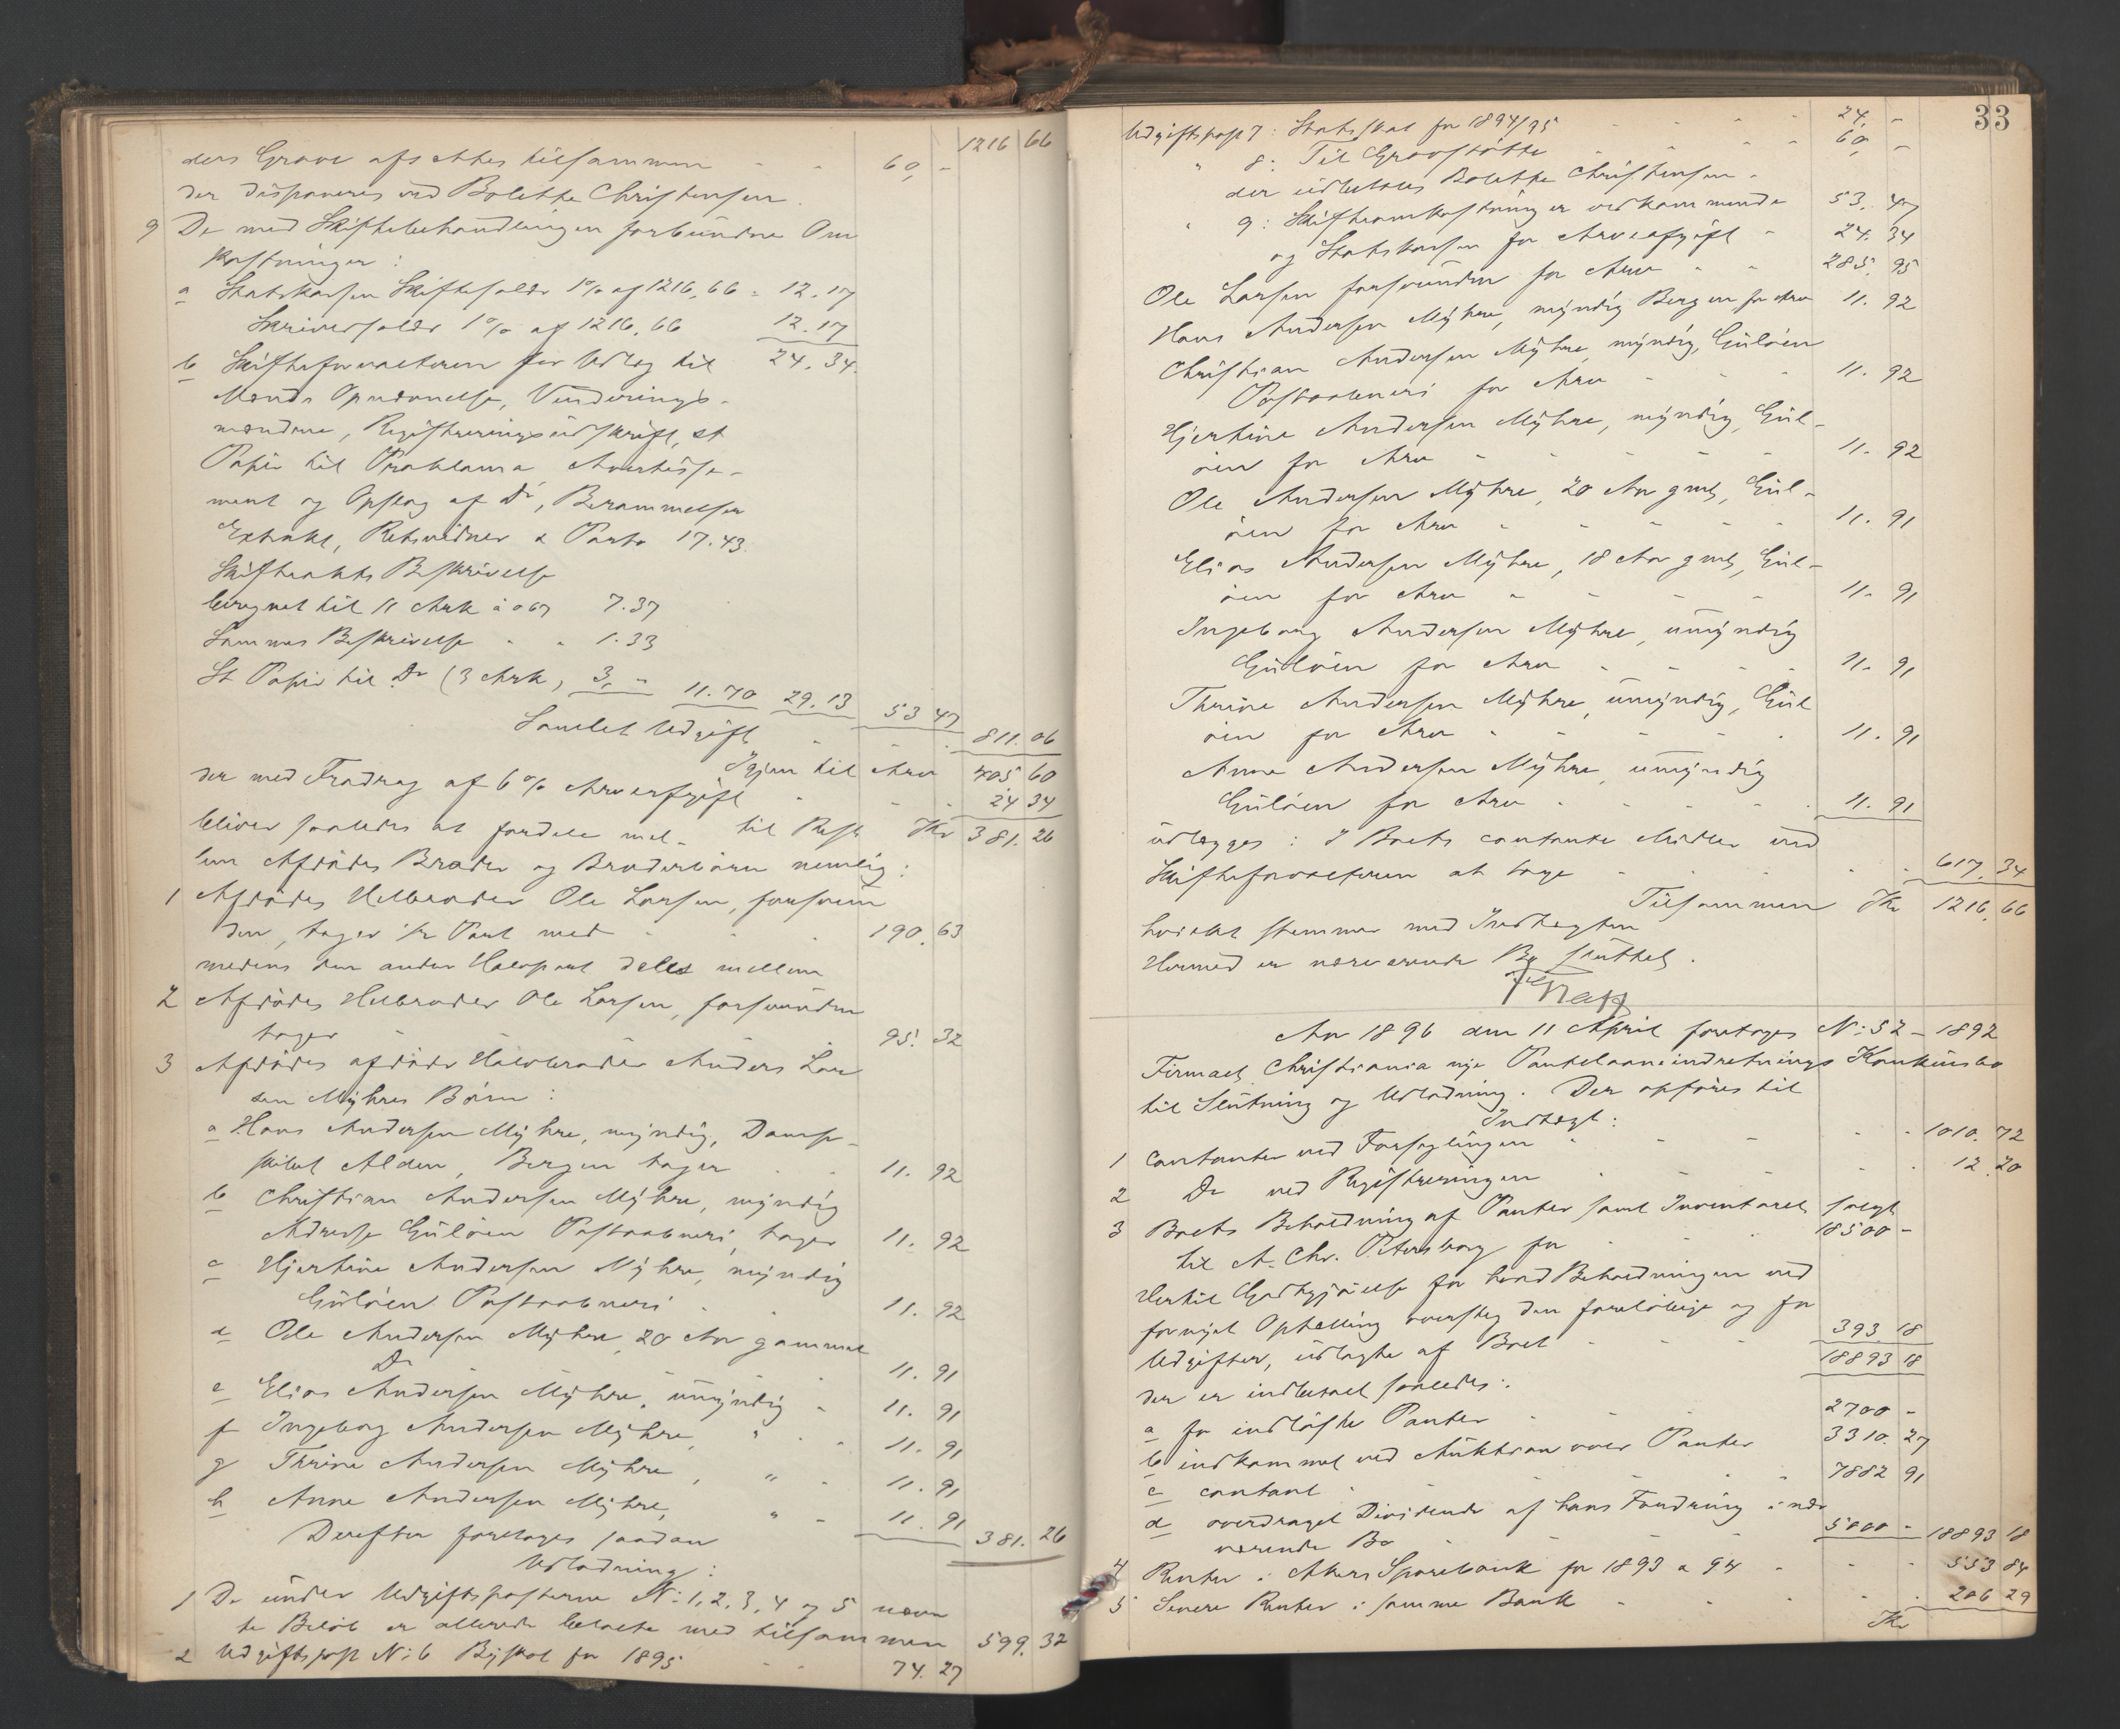 1216 66
ders Grave afsættes tilsammen - - 60, -
der disponeres ved Bolette Christensen.
9 De med Skiftebehandlingen forbundne Om
kostninger:
a Statskassen Skiftesalær 1 % af 1216,66 = 12.17
Skriversalær 1 % af 1216.66 12.17
24.34.
b Skifteforvalteren for Udlæg til
Mænds Opnævnelse, Vurderings-
mændene, Registreringsudskrift, st
Papir til Proklama Avertisse-
ment og Opslag af Do, Berammelser
Extrakt, Retsvidner & Porto 17.43.
Skifteakts Beskrivelse
beregnet til 11 Ark à 067 7.37
Sammes Beskrivelse - - 1.33
St Papir til Do (3 Ark) 3, - 11.70 29.13 53 47
Samlet Udgift - - - 811.06
Igjen til Arv 405 60
der med Fradrag af 6 % Arveafgift - - - 24 34
til Rest Kr 381.26
bliver saaledes at fordele mel-
lem Afdødes Broder og Broderbørn nemlig:
1 Afdødes Helbroder Ole Larsen, forsvun
den, tager 1/2 Part med - - - 190.63
medens den anden Halvpart deles mellem
2 Afdødes Helbroder Ole Larsen, forsvunden
tager - - 95.32
3 Afdødes afdøde Halvbroder Anders Lar
sen Myhres Børn:
a Hans Andersen Myhre, myndig, Damp-
skibet Alden, Bergen tager - - 11.92
b Christian Andersen Myhre, myndig
Adresse Guløen Postaabneri, tager 11.92
c Hjertine Andersen Myhre, myndig
Guløen Postaabneri - - 11.92
d Ole Andersen Myhre, 20 Aar gammel
Do - - 11.91
e Elias Andersen Myhre, umyndig - 11.91
f Ingeborg Andersen Myhre, " - - 11.91
g Thrine Andersen Myhre, " - 11.91
h Anne Andersen Myhre, " - 11.91
381.26
Derefter foretages saadan
Udlodning:
1 De under Udgiftsposterne No 1, 2, 3, 4 og 5 nævn
te Beløb er allerede betalte med tilsammen 599.32
2 Udgiftspost No 6 Byskat for 1895 - - 74.27
33
Udgiftspost 7: Statsskat for 1894/95 - - - - 24. -
" 8: Til Gravstøtte - - - - 60, -
der udbetales Bolette Christensen -
" 9: Skifteomkostninger vedkommende 53.47
og Statskassen for Arveafgift - 24.34
Ole Larsen forsvunden for Arv - - 285.95
Hans Andersen Myhre, myndig Bergen for Arv 11.92
Christian Andersen Myhre, myndig, Guløen
Postaabneri for Arv - - - 11.92
Hjertine Andersen Myhre, myndig, Gul-
øen for Arv - - - - - 11.92
Ole Andersen Myhre, 20 Aar gml, Gul-
øen for Arv - - - - - 11.91
Elias Andersen Myhre, 18 Aar gml, Gul-
øen for Arv - - - - 11.91
Ingeborg Andersen Myhre, umyndig
Guløen for Arv - - - - 11.91
Thrine Andersen Myhre, umyndig, Gul
øen for Arv - - - - - 11.91
Anne Andersen Myhre, umyndig
Guløen for Arv - - - - - 11.91
udlægges: I Boets contante Midler ved
Skifteforvalteren at tage - - - - - 617.34
Tilsammen Kr 1216.66
hvilket stemmer med Indtægten
Hermed er nærværende Bo sluttet.
Aar 1896 den 11 April foretoges No 52 - 1892
Firmaet Christiania nye Pantelaaneindretnings Konkursbo
til Slutning og Udlodning. Der opføres til
Indtægt:
1 Contanter ved Forseglingen - - - - - 1010.72
2 Do ved Registreringen - - - - - 12.20
3 Boets Beholdning af Panter samt Inventaret solgt
til A. Chr. Petersborg for - - - 18500 -
Hertil Godtgjørelse for hvad Beholdningen ved
fornyet Optælling oversteg den foreløbige og for
Udgifter, udlagte af Boet - - - 393 18
18893 18
der er indbetalt saaledes:
a for indløste Panter - - - 2700 -
b indkommet ved Auktion over Panter 3310.27
c contant - - - - 7882 91
d overdraget Dividende af hans Fordring i nær
værende Bo - - - 5000 - 18893 18
4 Renter i Akers Sparebank for 1893 & 94 - - - 553 84
5 Senere Renter i samme Bank - - - - 206 29
Kr